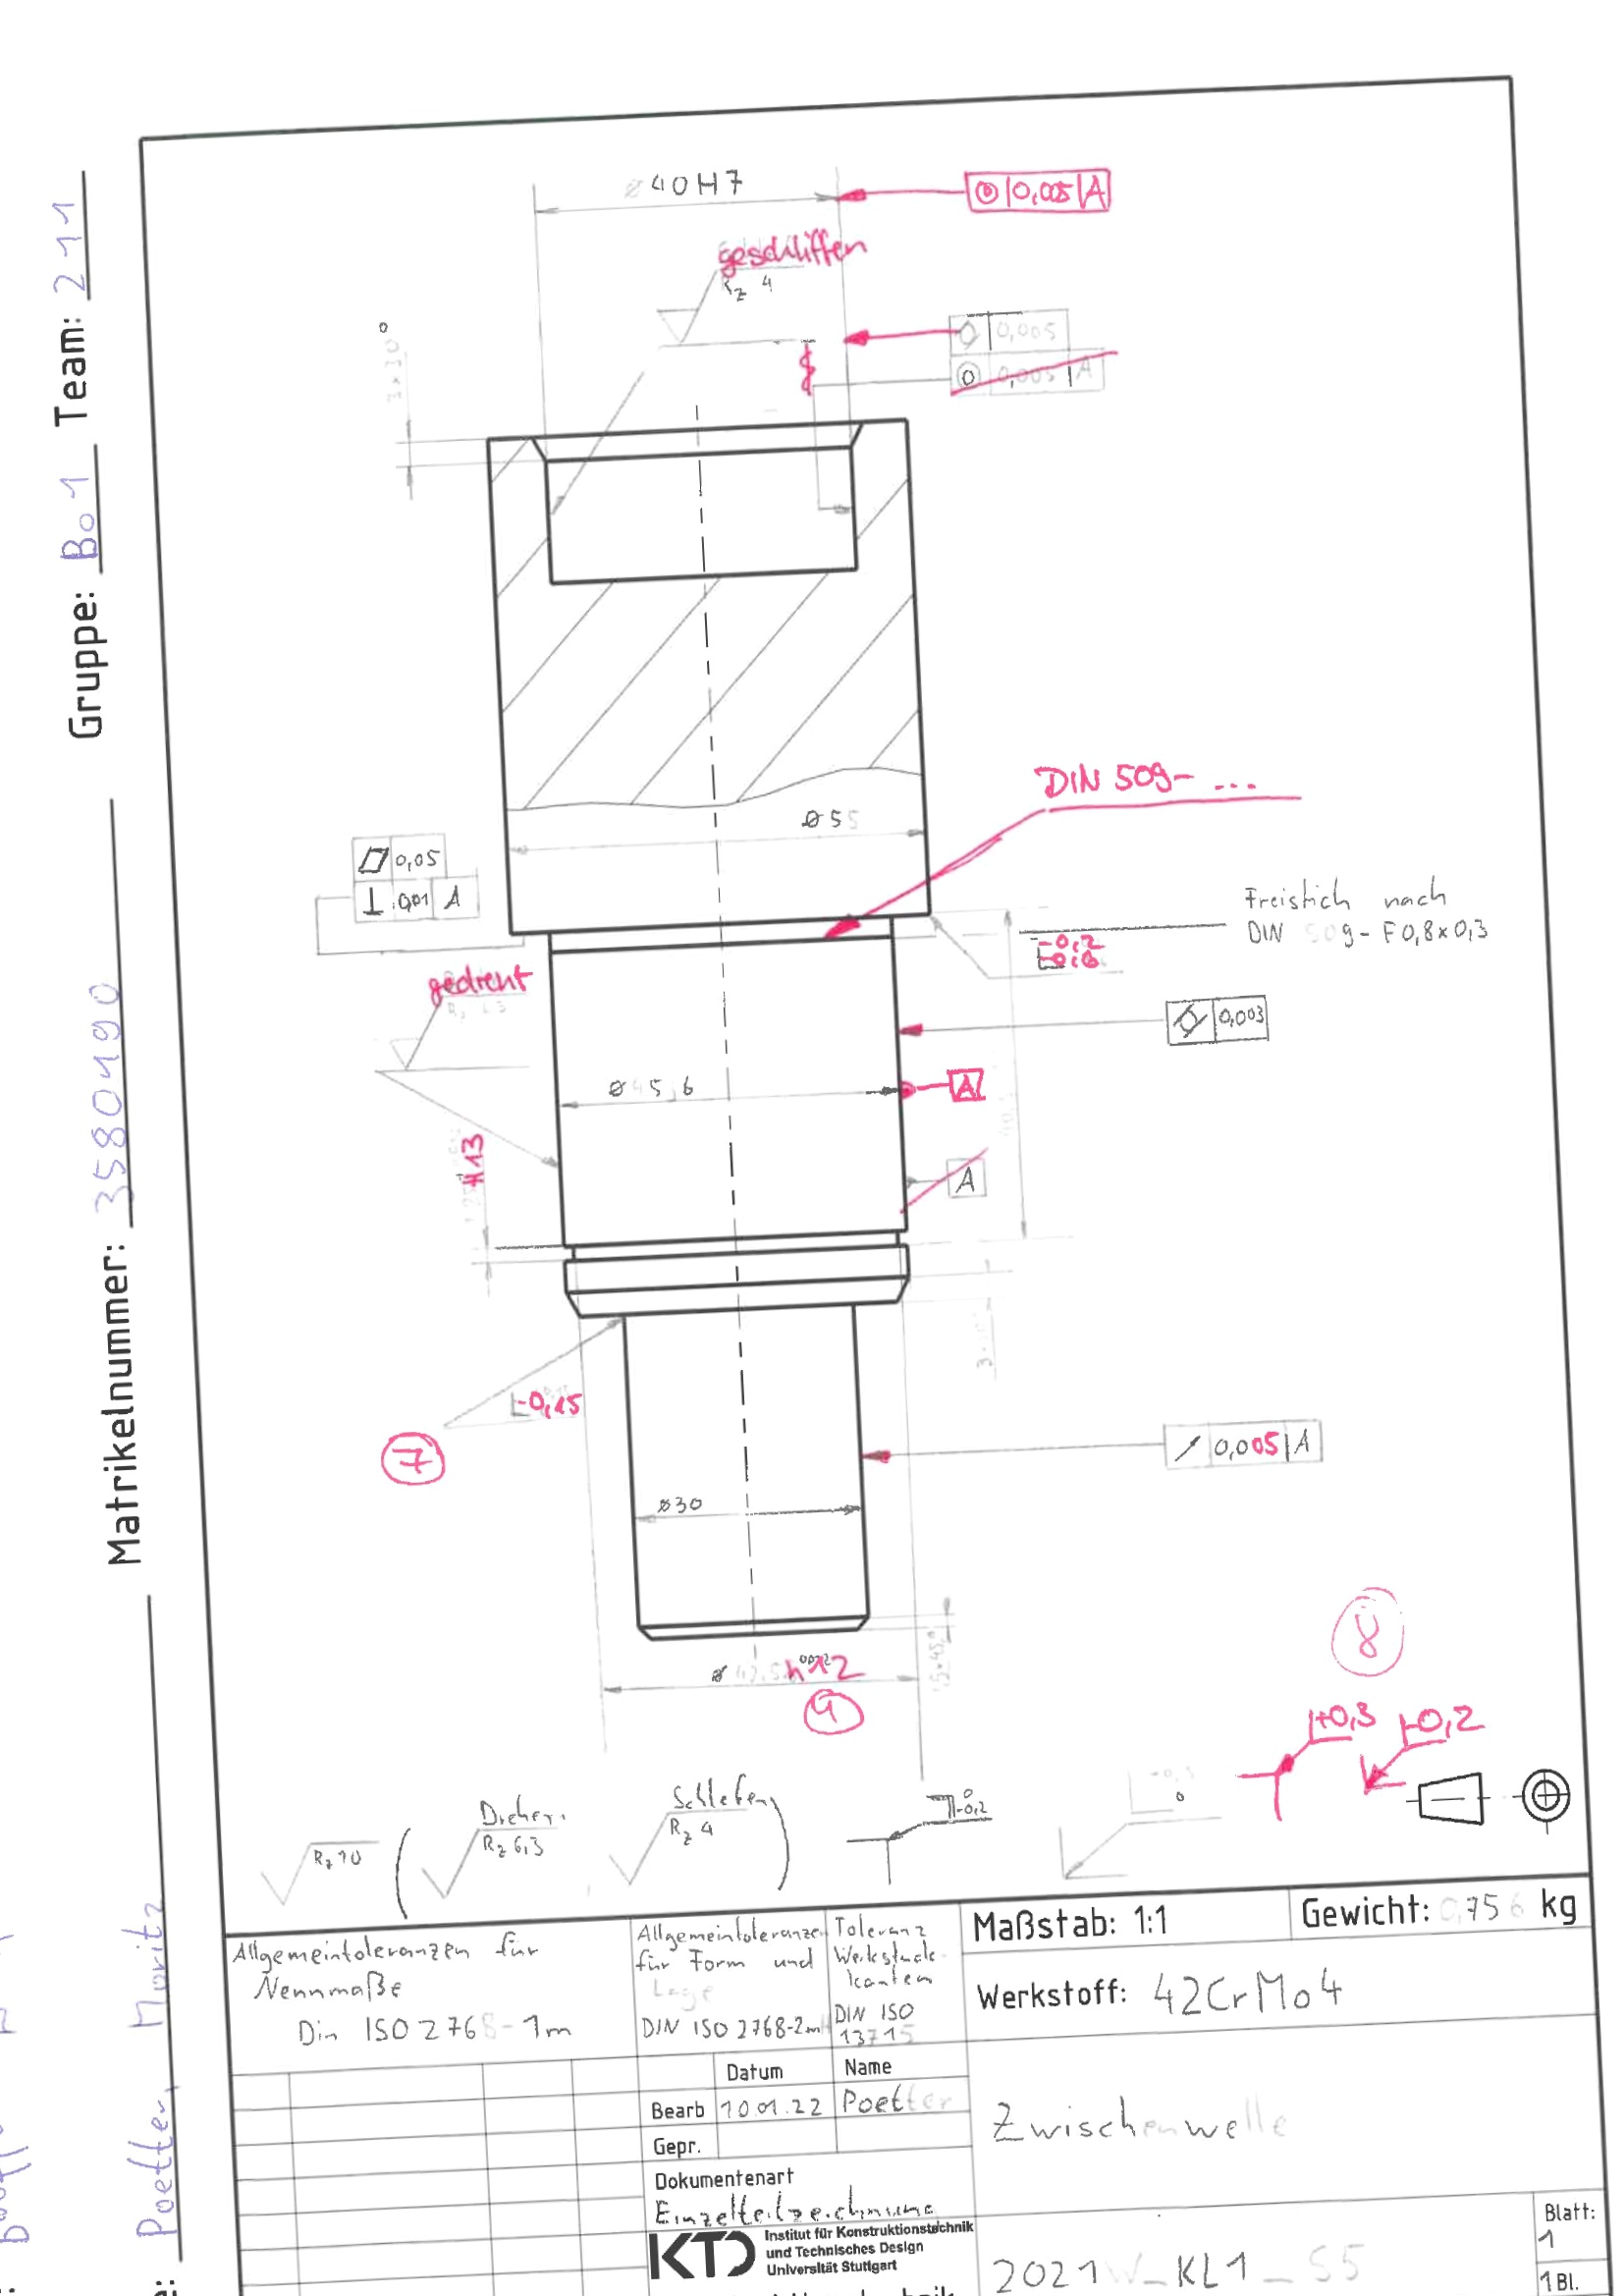 Gruppe: B01 Team: 211
Matrikelnummer: 3580490
Poetter, Moritz
⌀40H7
◎ 0,005 A
geschliffen
Rz 4
0,005
◎ 0,005 A
⌀55
DIN 509- ...
⏥ 0,05
⊥ 0,01 A
Freistich nach
DIN 509-F0,8x0,3
-0,2
gedreht
⌭ 0,003
⌀45,6
A
H13
A
-0,15
7
↗ 0,005 A
⌀30
h12
9
8
+0,3
-0,2
Rz 10
Drehen
Rz 6,3
Schleifen
Rz 4
0
-0,2
Allgemeintoleranzen für
Nennmaße
Din ISO 2768-1m
Allgemeintoleranzen
für Form und
Lage
DIN ISO 2768-2mH
Toleranz
Werkstück
kanten
DIN ISO
13715
Maßstab: 1:1
Gewicht: 0,756 kg
Werkstoff: 42CrMo4
Datum
Name
Bearb
10.01.22
Poetter
Gepr.
Zwischenwelle
Dokumentenart
Einzelteilzeichnung
KTD
Institut für Konstruktionstechnik
und Technisches Design
Universität Stuttgart
2021W_KL1_S5
Blatt:
1
1 Bl.